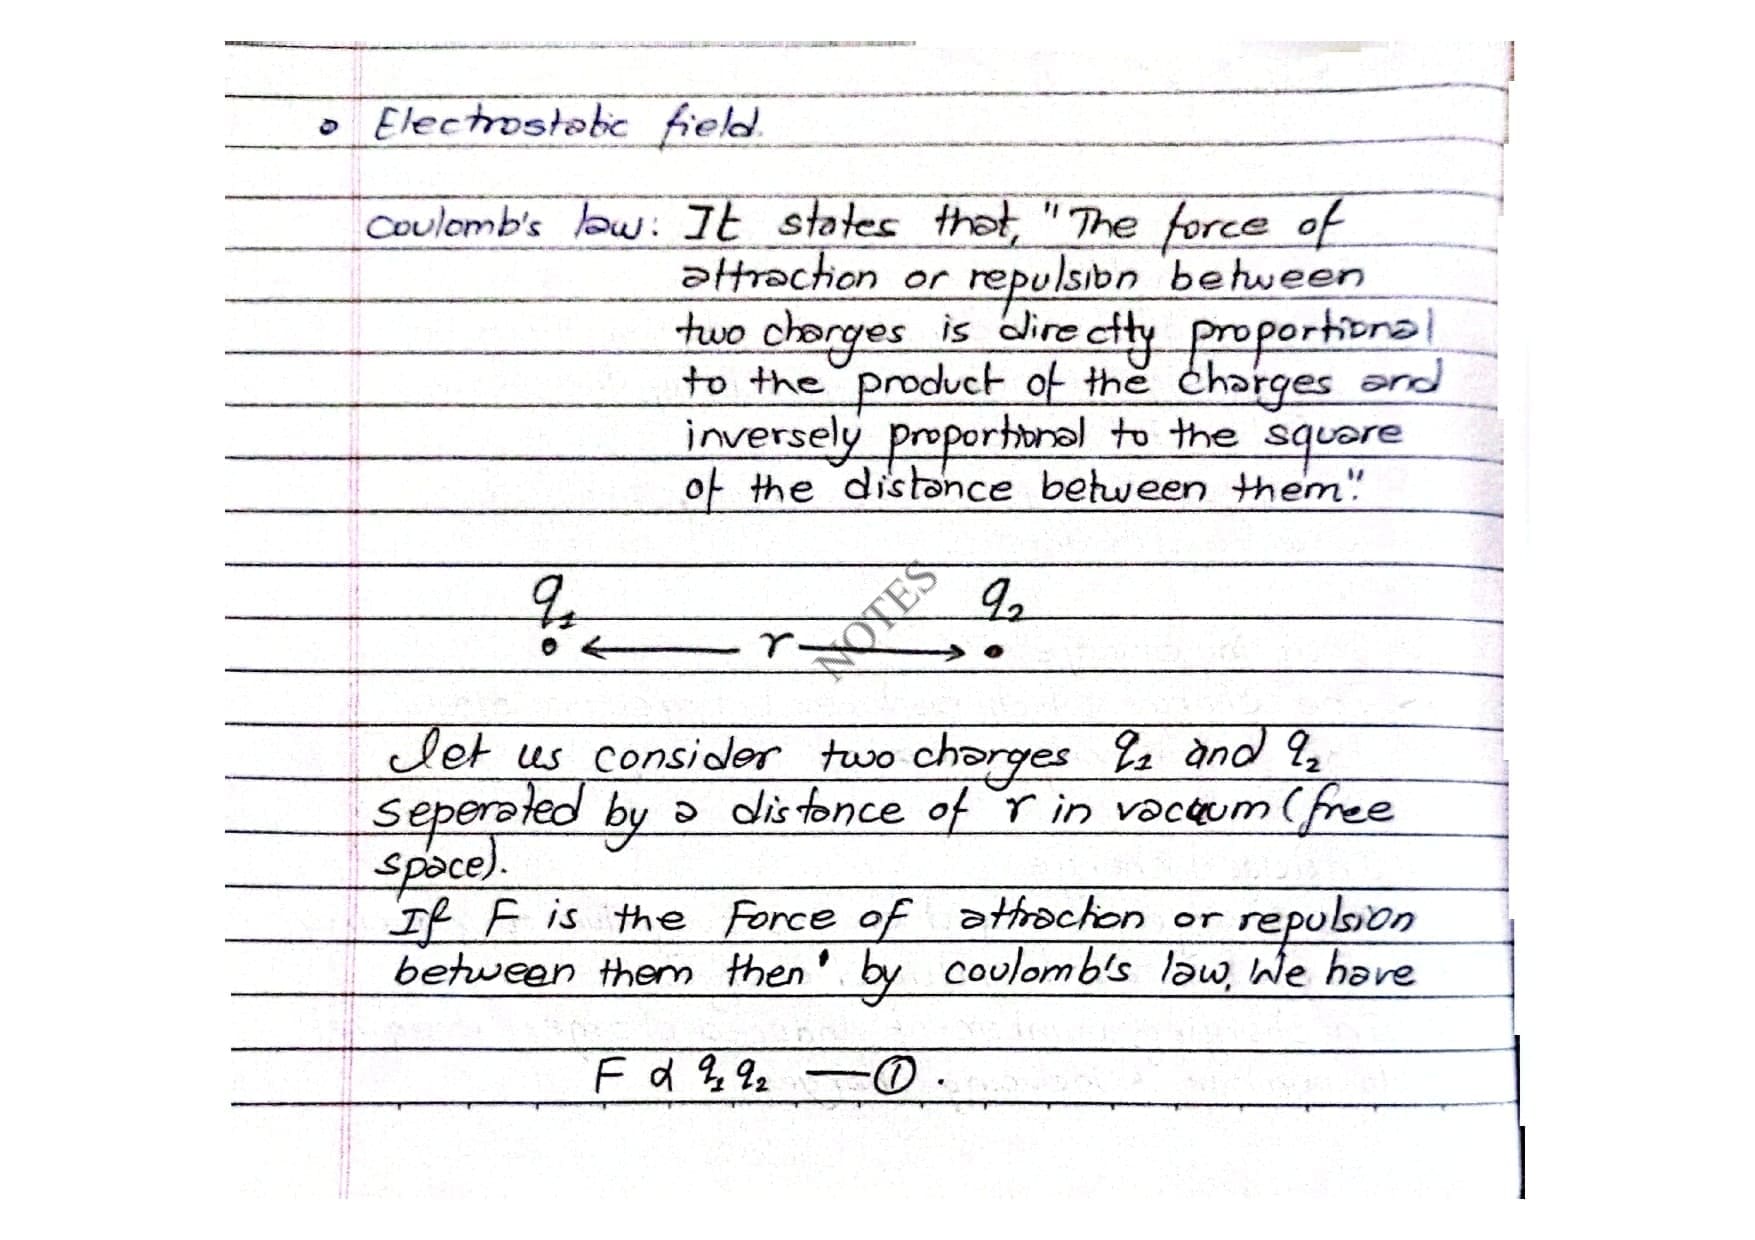 Electrostatic field.
Coulomb's law: It states that, "The force of
attraction or repulsion between
two charges is directly proportional
to the product of the charges and
inversely proportional to the square
of the distance between them".
q₁ q₂
r
NOTES
let us consider two charges q₁ and q₂
seperated by a distance of r in vacuum (free
space).
If F is the Force of attraction or repulsion
between them then' by coulomb's law, We have
F α q₁ q₂ —①.